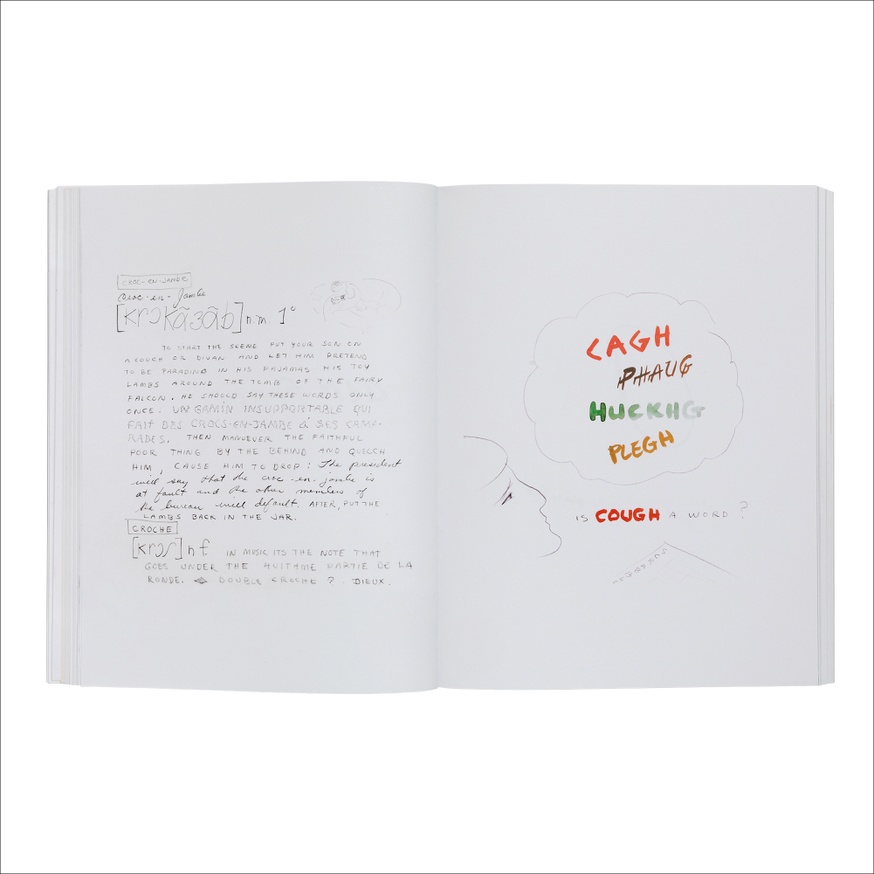 CROC-EN-JAMBE
Croc-en-Jambe
[krɔkɑ̃ʒɑ̃b] n.m 1°
TO START THE SCENE PUT YOUR SON ON
A COUCH OR DIVAN AND LET HIM PRETEND
TO BE PARADING IN HIS PAJAMAS HIS TOY
LAMBS AROUND THE TOMB OF THE FAIRY
FALCON. HE SHOULD SAY THESE WORDS ONLY
ONCE. UN GAMIN INSUPPORTABLE QUI
FAIT DES CROCS-EN-JAMBE à SES CAMA-
RADES. THEN MANUEVER THE FAITHFUL
POOR THING BY THE BEHIND AND QUICH
HIM, CAUSE HIM TO DROP: The president
will say that the croc-en-jambe is
at fault and the other members of
the bureau will default. AFTER, PUT THE
LAMBS BACK IN THE JAR.
CROCHE
[krɔʃ] n f. IN MUSIC ITS THE NOTE THAT
GOES UNDER THE HUITIEME PARTIE DE LA
RONDE. DOUBLE CROCHE? DIEUX.
CAGH
PHAUG
HUCKHG
PLEGH
IS COUGH A WORD?